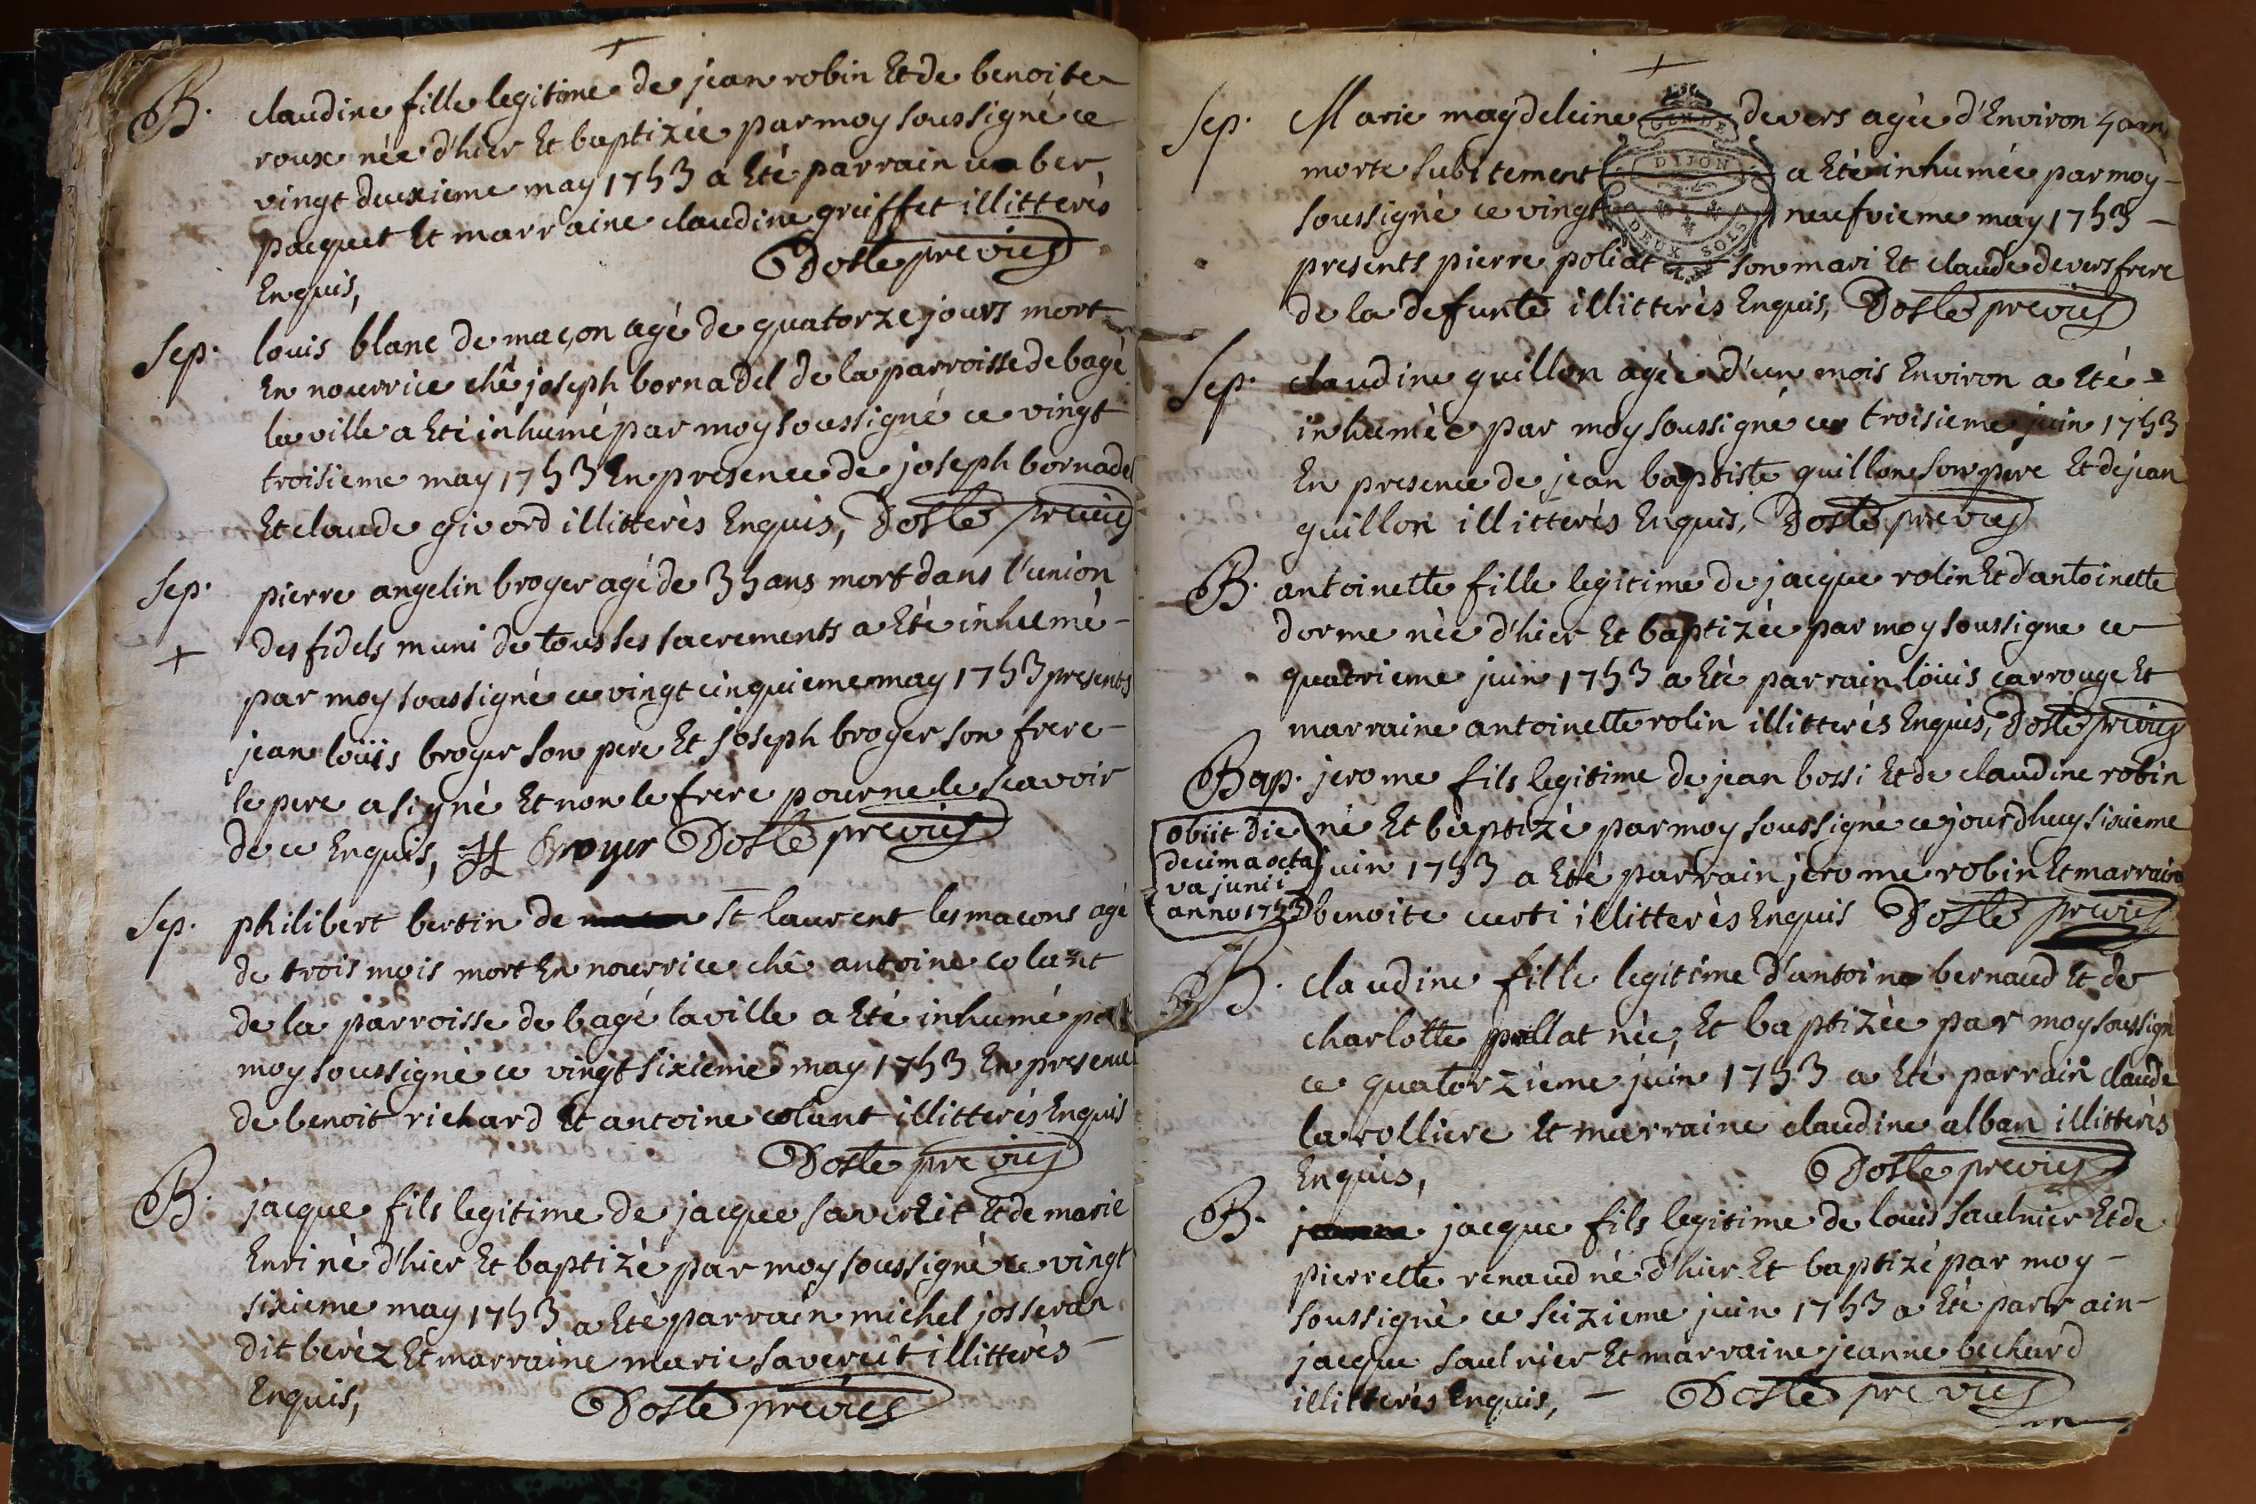 B. claudine fille legitime de jean robin Et de benoite
roux née d'hier Et baptizée par moy soussigné ce
vingt deuxieme may 1753 a Eté parrain
pacquet Et marraine claudine greiffet illitterés
Enquis, Dosle prevics
Sep. louis blanc de maçon agé de quatorze jours mort
En nourrice ché joseph bornadel de la parroisse de bagé
la ville a Eté inhumé par moy soussigné ce vingt
troisieme may 1753 En presence de joseph bornadel
Et claude givord illitterés Enquis, Dosle
Sep. pierre angelin broyer agé de 35 ans mort dans l'union
des fidels muni de tous les sacrements a Eté inhumé
par moy soussigné ce vingt cinquieme may 1753 presents
jean loüis broyer son pere Et joseph broyer son frere
le pere a signé Et non le frere pour ne le scavoir
de ce Enquis, Broyer Dosle
Sep. philibert bertin de St laurent les macons agé
de trois mois mort En nourrice ché antoine colant
de la parroisse de bagé la ville a Eté inhumé par
moy soussigné ce vingt sixieme may 1753 En presence
de benoit richard Et antoine colant illitterés Enquis
Dosle
B. jacque fils legitime de jacque saverüt Et de marie
Enri né d'hier Et baptizé par moy soussigné ce vingt
sixieme may 1753 a Eté parrain michel josseran
dit beréz Et marraine marie saverüt illitterés
Enquis, Dosle
Sep. Marie maydeleine devers agée d'Environ ans
GENDE
DIJON
DEUX SOLS
morte subitement a Eté inhumée par moy
soussigné ce vingt neufvieme may 1753
presents pierre poliat son mari Et claude devers frere
de la defunte illitterés Enquis, Dosle
Sep. claudine guillon agée d'un mois Environ a Eté
inhumée par moy soussigné ce troisieme juin 1753
En presence de jean baptiste guillon son pere Et de jean
guillon illitterés Enquis, Dosle
B. antoinette fille legitime de jacque rolin Et d'antoinette
dorme née d'hier Et baptizée par moy soussigne ce
quatrieme juin 1753 a Eté parrain loüis carrouge Et
marraine antoinette rolin illitterés Enquis, Dosle
Bap. jerome fils legitime de jean bossi Et de claudine robin
né Et baptizé par moy soussigné ce jourdhuy sixieme
juin 1753 a Eté parrain jerome robin Et marraine
benoite curti illitterés Enquis Dosle
obiit die
decima octa
va junii
anno 1753
B. claudine fille legitime d'antoine bernaud Et de
charlotte née, Et baptizée par moy soussigné
ce quatorzieme juin 1753 a Eté parrain claude
larolliere Et marraine claudine alban illitterés
Enquis, Dosle
B. jacque fils legitime de louis saulnier Et de
pierrette renaud né d'hier Et baptizé par moy
soussigné ce seizieme juin 1753 a Eté parrain
jacque saulnier Et marraine jeanne bechard
illitterés Enquis, Dosle